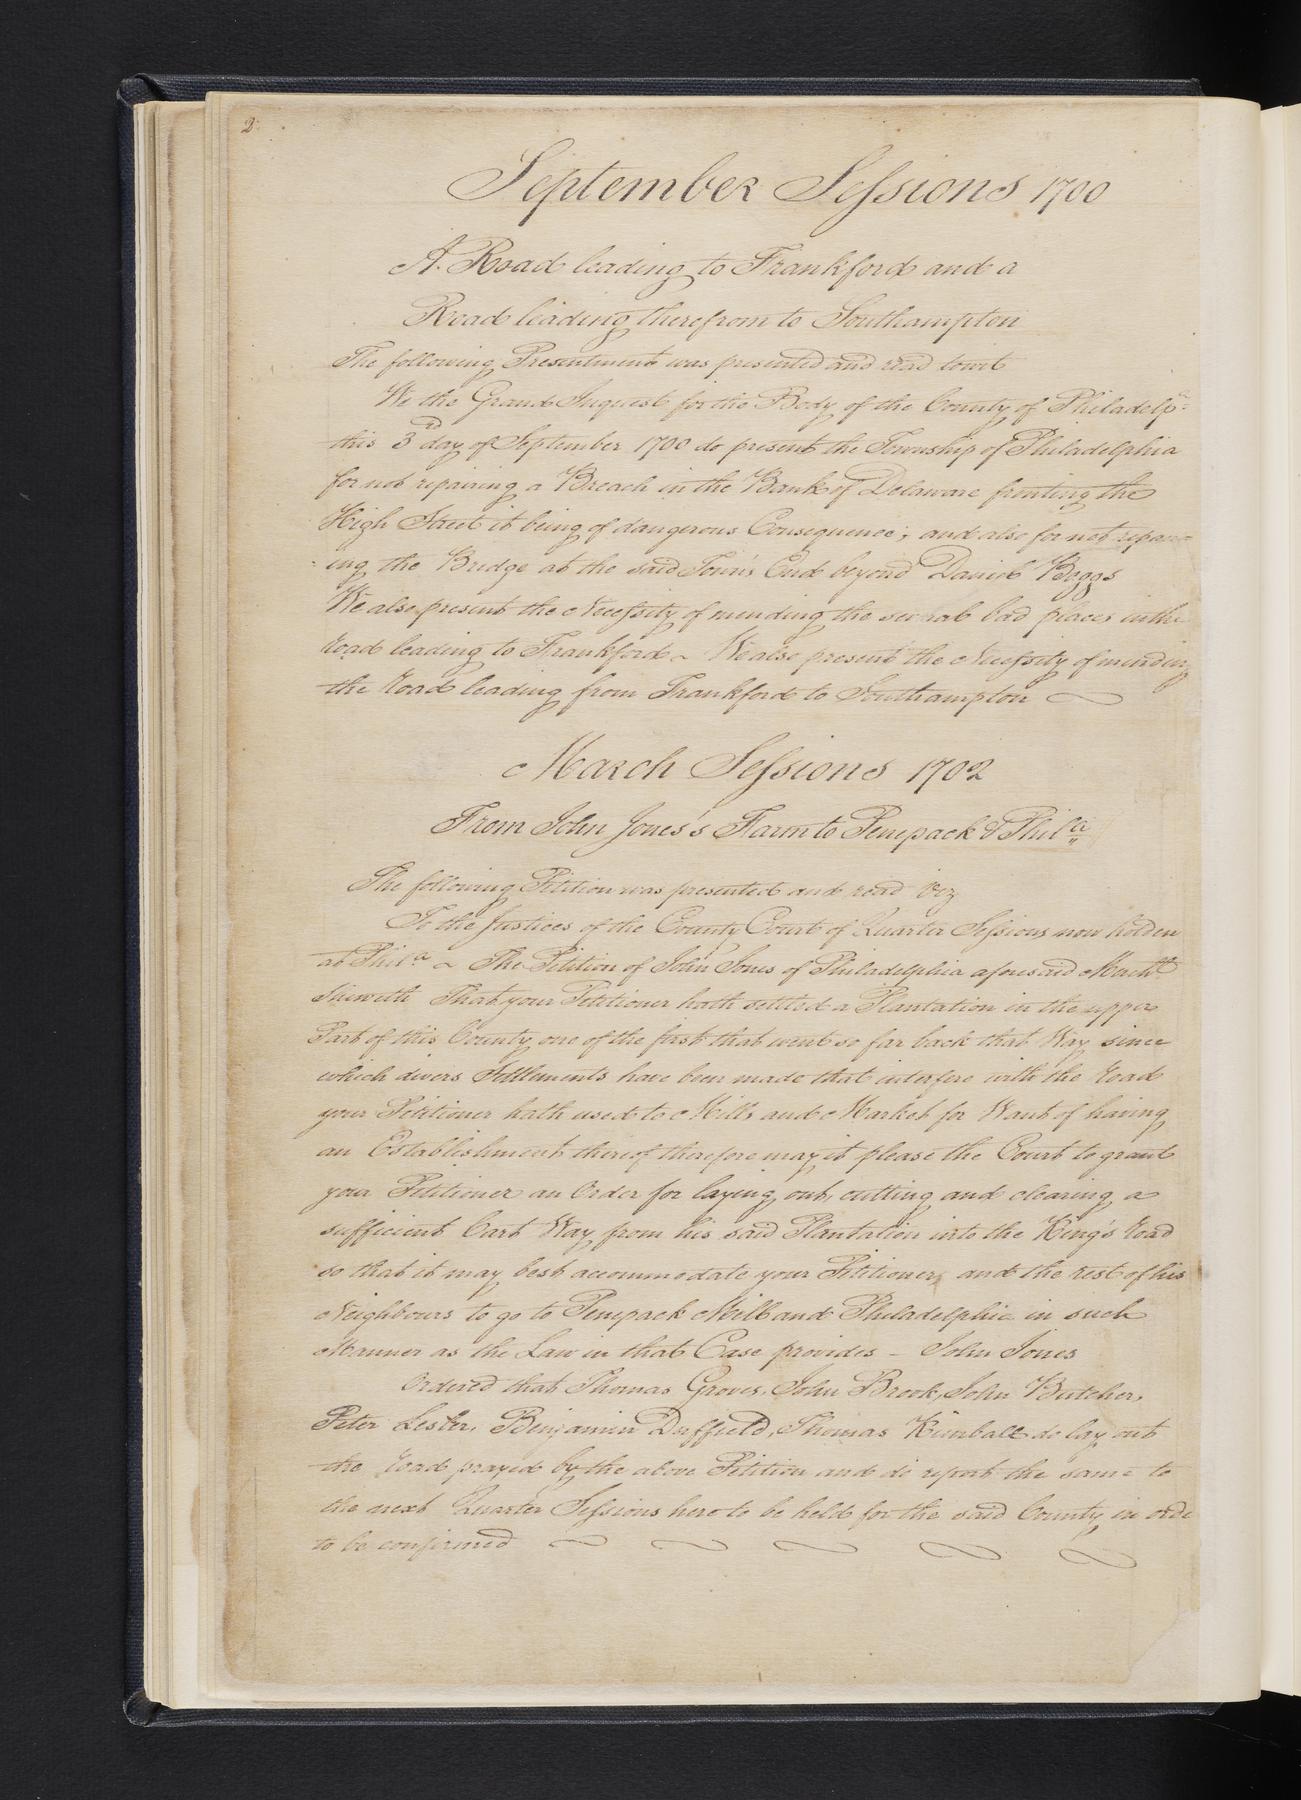 2.
September Sessions 1700
A Road leading to Frankford and a
Road leading therefrom to Southampton
The following Presentment was presented and read towit
We the Grand Inquest for the Body of the County of Philadelp.a
this 3rd day of September 1700 do present the Township of Philadelphia
for not repairing a Breach in the Bank of Delaware fronting the
High Street it being of dangerous Consequence; and also for not repair-
-ing the Bridge at the said Town's End beyond Daniel Beggs
We also present the Necessity of mending the several bad places in the
Road leading to Frankford ~ We also present the Necessity of mending
the Road leading from Frankford to Southampton
March Sessions 1702
From John Jones's Farm to Penepack & Phil.a
The following Petition was presented and read Viz
To the Justices of the County Court of Quarter Sessions now holden
at Phil.a ~ The Petition of John Jones of Philadelphia aforesaid March.t
Sheweth That your Petitioner hath settled a Plantation in the upper
Part of this County one of the first that went so far back that Way since
which divers Settlements have been made that interfere with the Road
your Petitioner hath used to Mill and Market for Want of having
an Establishment thereof therefore may it please the Court to grant
your Petitioner an Order for laying out, cutting and clearing a
sufficient Cart Way from his said Plantation into the King's Road
so that it may best accommodate your Petitioner, and the rest of his
Neighbours to go to Penepack Mill and Philadelphia in such
Manner as the Law in that Case provides - John Jones
Ordered that Thomas Groves, John Brook, John Butcher,
Peter Lester, Benjamin Duffield, Thomas Kimball do lay out
the Road prayed by the above Petition and do report the same to
the next Quarter Sessions here to be held for the said County in orde
to be confirmed